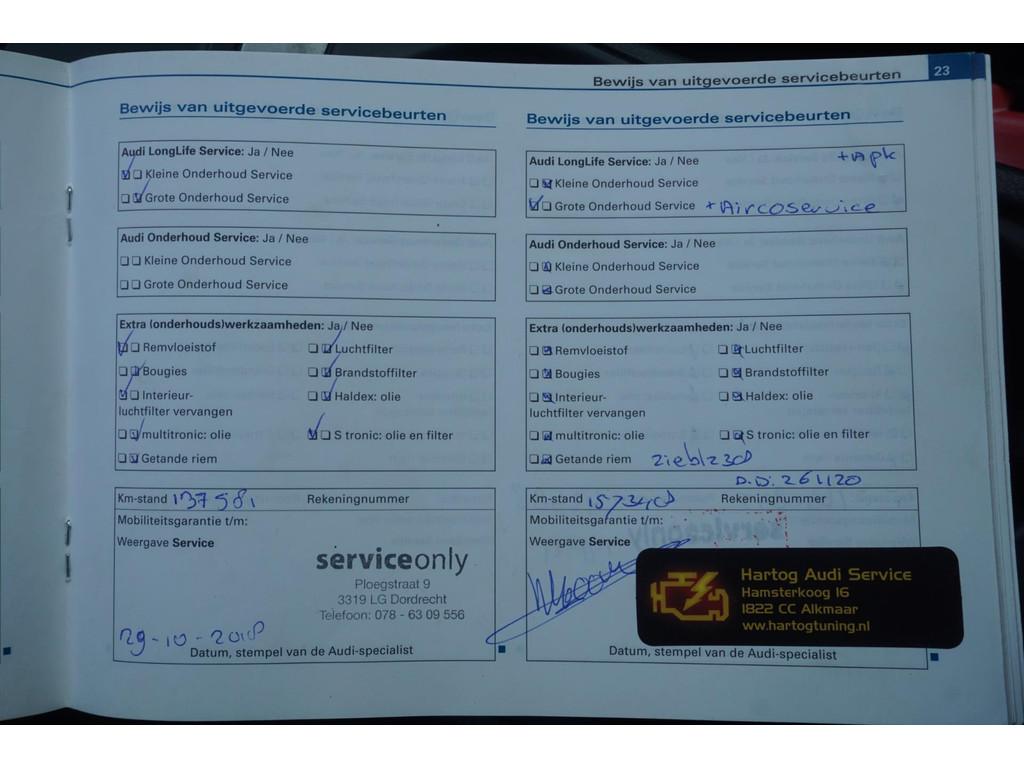 Bewijs van uitgevoerde servicebeurten 23
Bewijs van uitgevoerde servicebeurten
Audi LongLife Service: Ja / Nee
Kleine Onderhoud Service
Grote Onderhoud Service
Audi Onderhoud Service: Ja / Nee
Kleine Onderhoud Service
Grote Onderhoud Service
Extra (onderhouds)werkzaamheden: Ja / Nee
Remvloeistof Luchtfilter
Bougies Brandstoffilter
Interieur- Haldex: olie
luchtfilter vervangen
multitronic: olie S tronic: olie en filter
Getande riem
Km-stand 137581 Rekeningnummer
Mobiliteitsgarantie t/m:
Weergave Service
serviceonly
Ploegstraat 9
3319 LG Dordrecht
Telefoon: 078 - 63 09 556
29-10-2018
Datum, stempel van de Audi-specialist
Bewijs van uitgevoerde servicebeurten
Audi LongLife Service: Ja / Nee +Apk
Kleine Onderhoud Service
Grote Onderhoud Service +Aircoservice
Audi Onderhoud Service: Ja / Nee
Kleine Onderhoud Service
Grote Onderhoud Service
Extra (onderhouds)werkzaamheden: Ja / Nee
Remvloeistof Luchtfilter
Bougies Brandstoffilter
Interieur- Haldex: olie
luchtfilter vervangen
multitronic: olie S tronic: olie en filter
Getande riem
D.D. 261120
Km-stand Rekeningnummer
Mobiliteitsgarantie t/m:
serviceonly
Weergave Service
Hartog Audi Service
Hamsterkoog 16
1822 CC Alkmaar
ww.hartogtuning.nl
Datum, stempel van de Audi-specialist